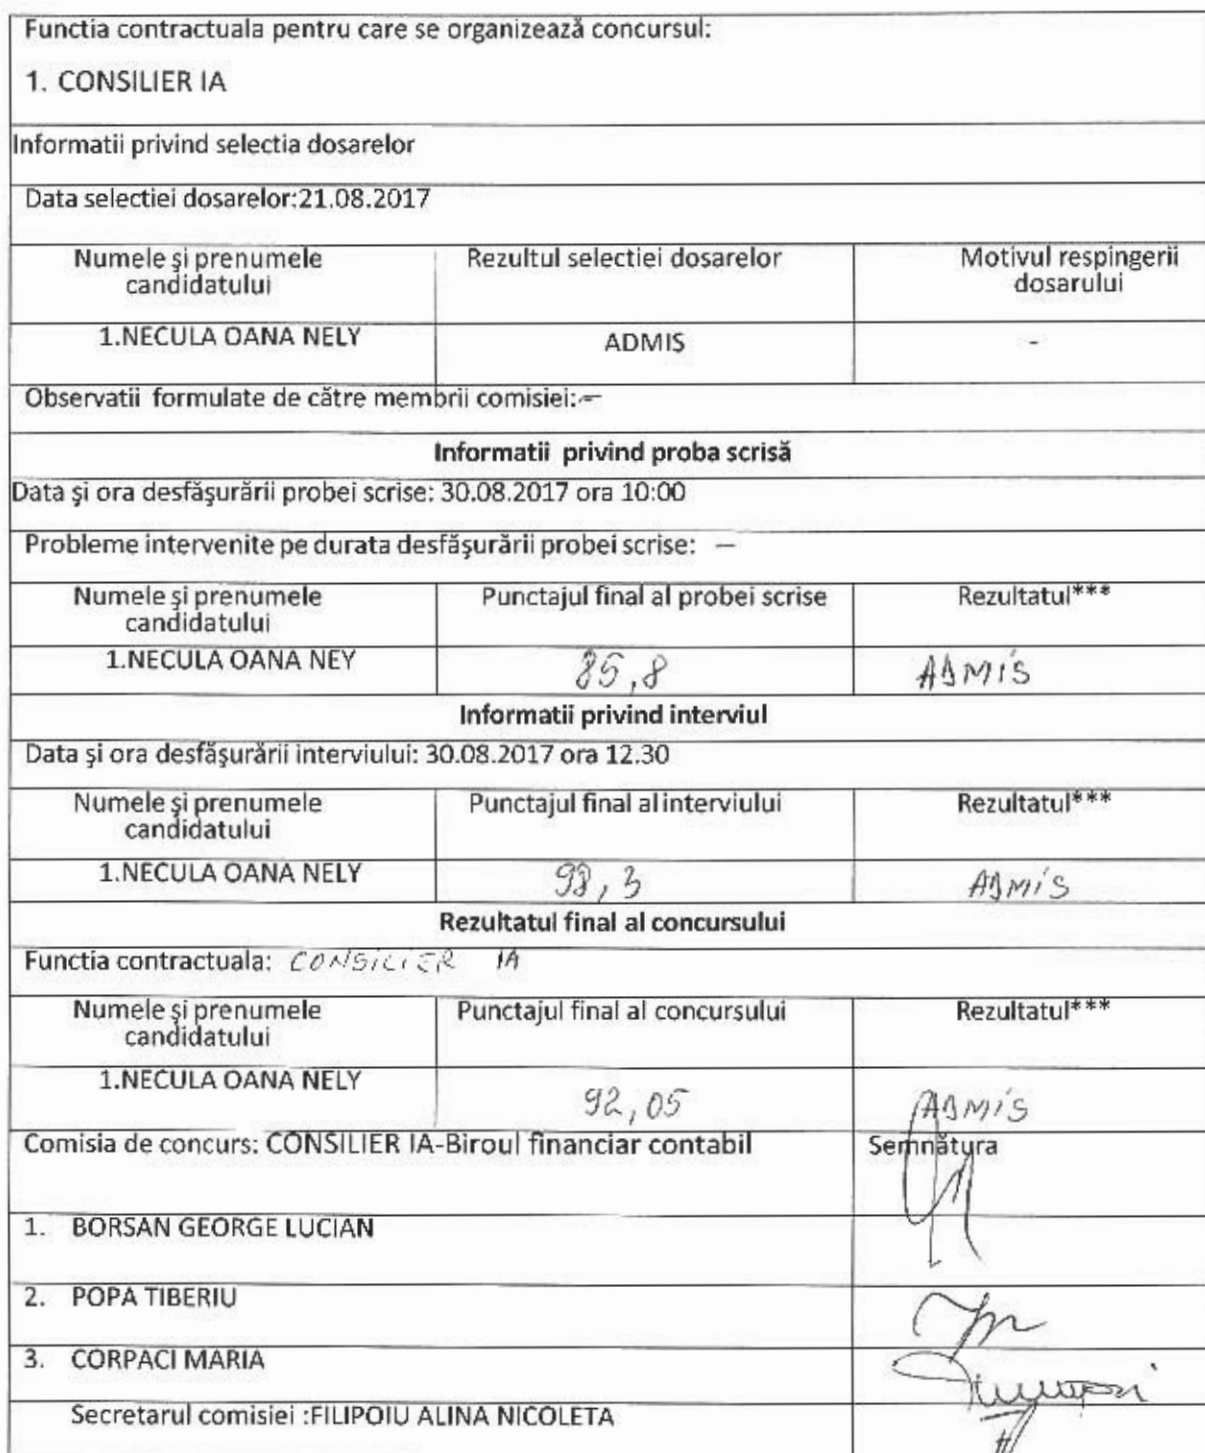 Functia contractuala pentru care se organizează concursul:
1. CONSILIER IA
Informatii privind selectia dosarelor
Data selectiei dosarelor:21.08.2017
Numele și prenumele candidatului
Rezultul selectiei dosarelor
Motivul respingerii dosarului
1.NECULA OANA NELY
ADMIS
-
Observatii formulate de către membrii comisiei:-
Informatii privind proba scrisă
Data și ora desfășurării probei scrise: 30.08.2017 ora 10:00
Probleme intervenite pe durata desfășurării probei scrise: —
Numele și prenumele candidatului
Punctajul final al probei scrise
Rezultatul***
1.NECULA OANA NEY
85,8
ADMIS
Informatii privind interviul
Data și ora desfășurării interviului: 30.08.2017 ora 12.30
Numele și prenumele candidatului
Punctajul final al interviului
Rezultatul***
1.NECULA OANA NELY
98,3
ADMIS
Rezultatul final al concursului
Functia contractuala: CONSILIER IA
Numele și prenumele candidatului
Punctajul final al concursului
Rezultatul***
1.NECULA OANA NELY
92,05
ADMIS
Comisia de concurs: CONSILIER IA-Biroul financiar contabil
Semnătura
1. BORSAN GEORGE LUCIAN
2. POPA TIBERIU
3. CORPACI MARIA
Secretarul comisiei :FILIPOIU ALINA NICOLETA